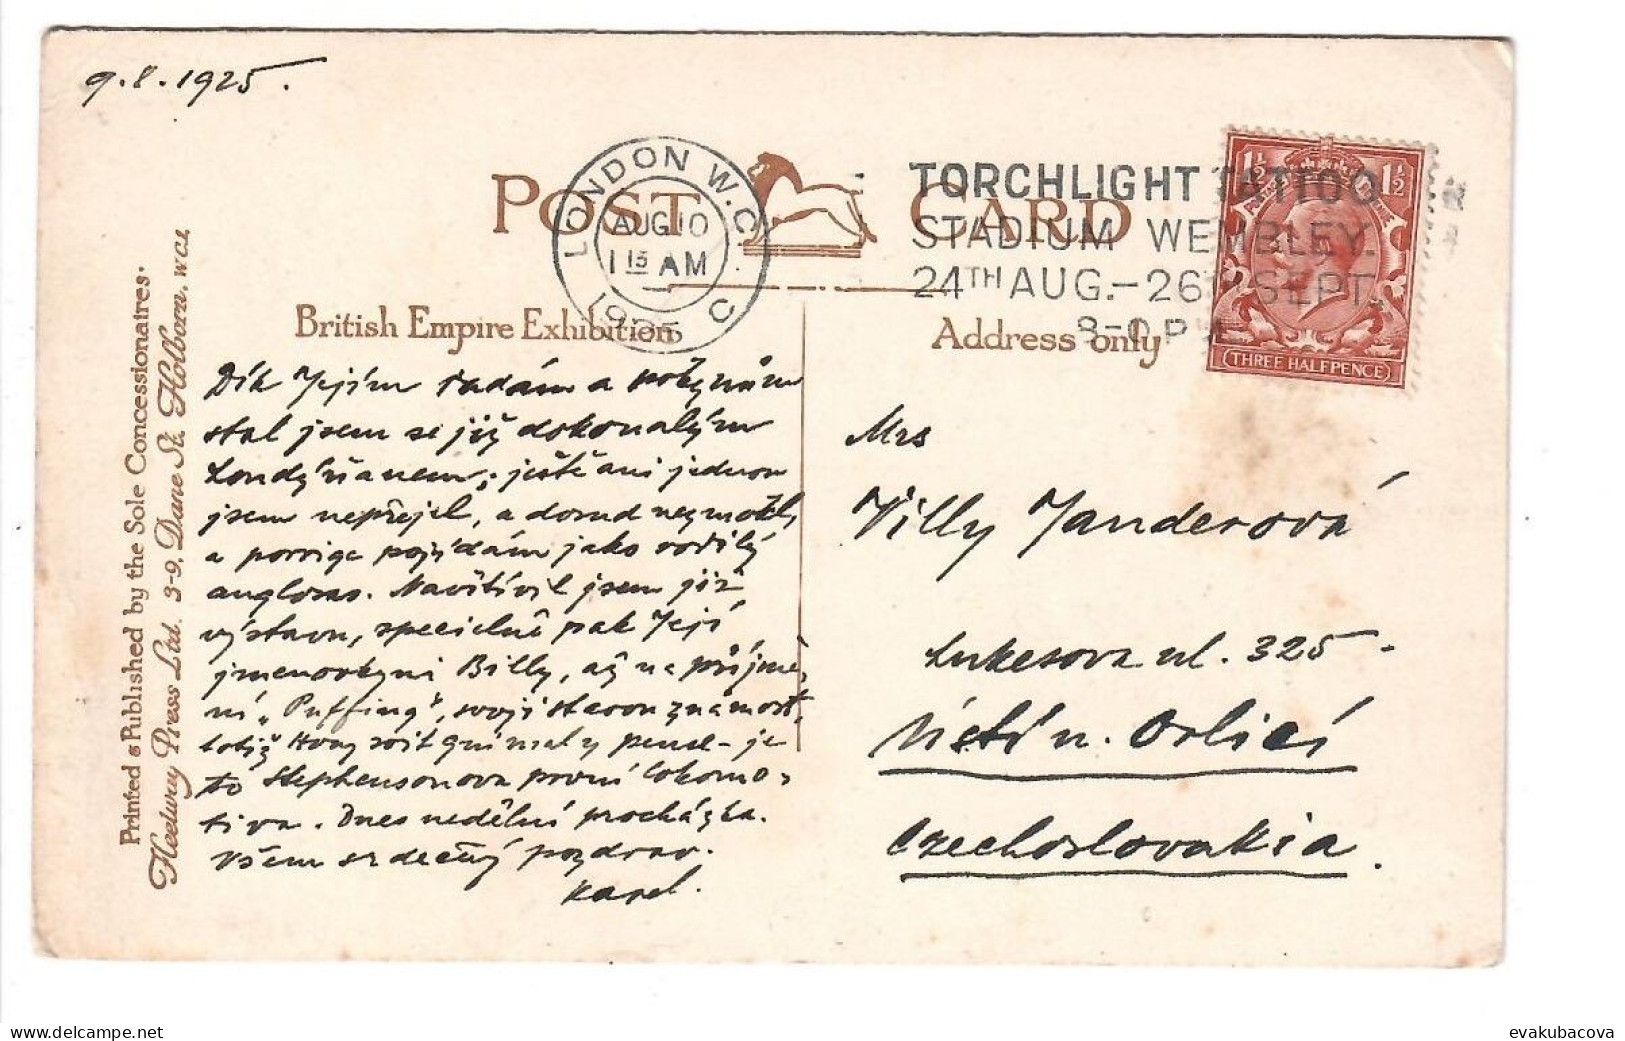 9.8.1925.
POST CARD
LONDON W.C.
AUG 10
1 15 AM
1925
C
TORCHLIGHT TATTOO
STADIUM WEMBLEY.
24TH AUG.-26 SEPT.
1½ 1½
THREE HALFPENCE
British Empire Exhibition
Address only
Printed & Published by the Sole Concessionaires.
Fleetway Press Ltd. 3-9, Dane St. Holborn. W.C.1.
Dík Jejím radám a pokynům
stal jsem se již dokonalým
Londýňanem; ještě ani jednou
jsem nepřejel, a dosud nezmokl,
a porrige pojídám jako rodilý
anglosas. Navštívil jsem již
výstavu, specielně pak Její
jmenovkyni Billy, až na příjme-
ní „Puffing“, svoji starou známost,
totiž
to Stephensonova první lokomo-
tiva. Dnes nedělní procházka.
Všem srdečný pozdrav.
Karel.
Mrs
Villy Janderová
Lukesova ul. 325
Ústí n. Orlicí
Czechoslovakia.
evakubacova